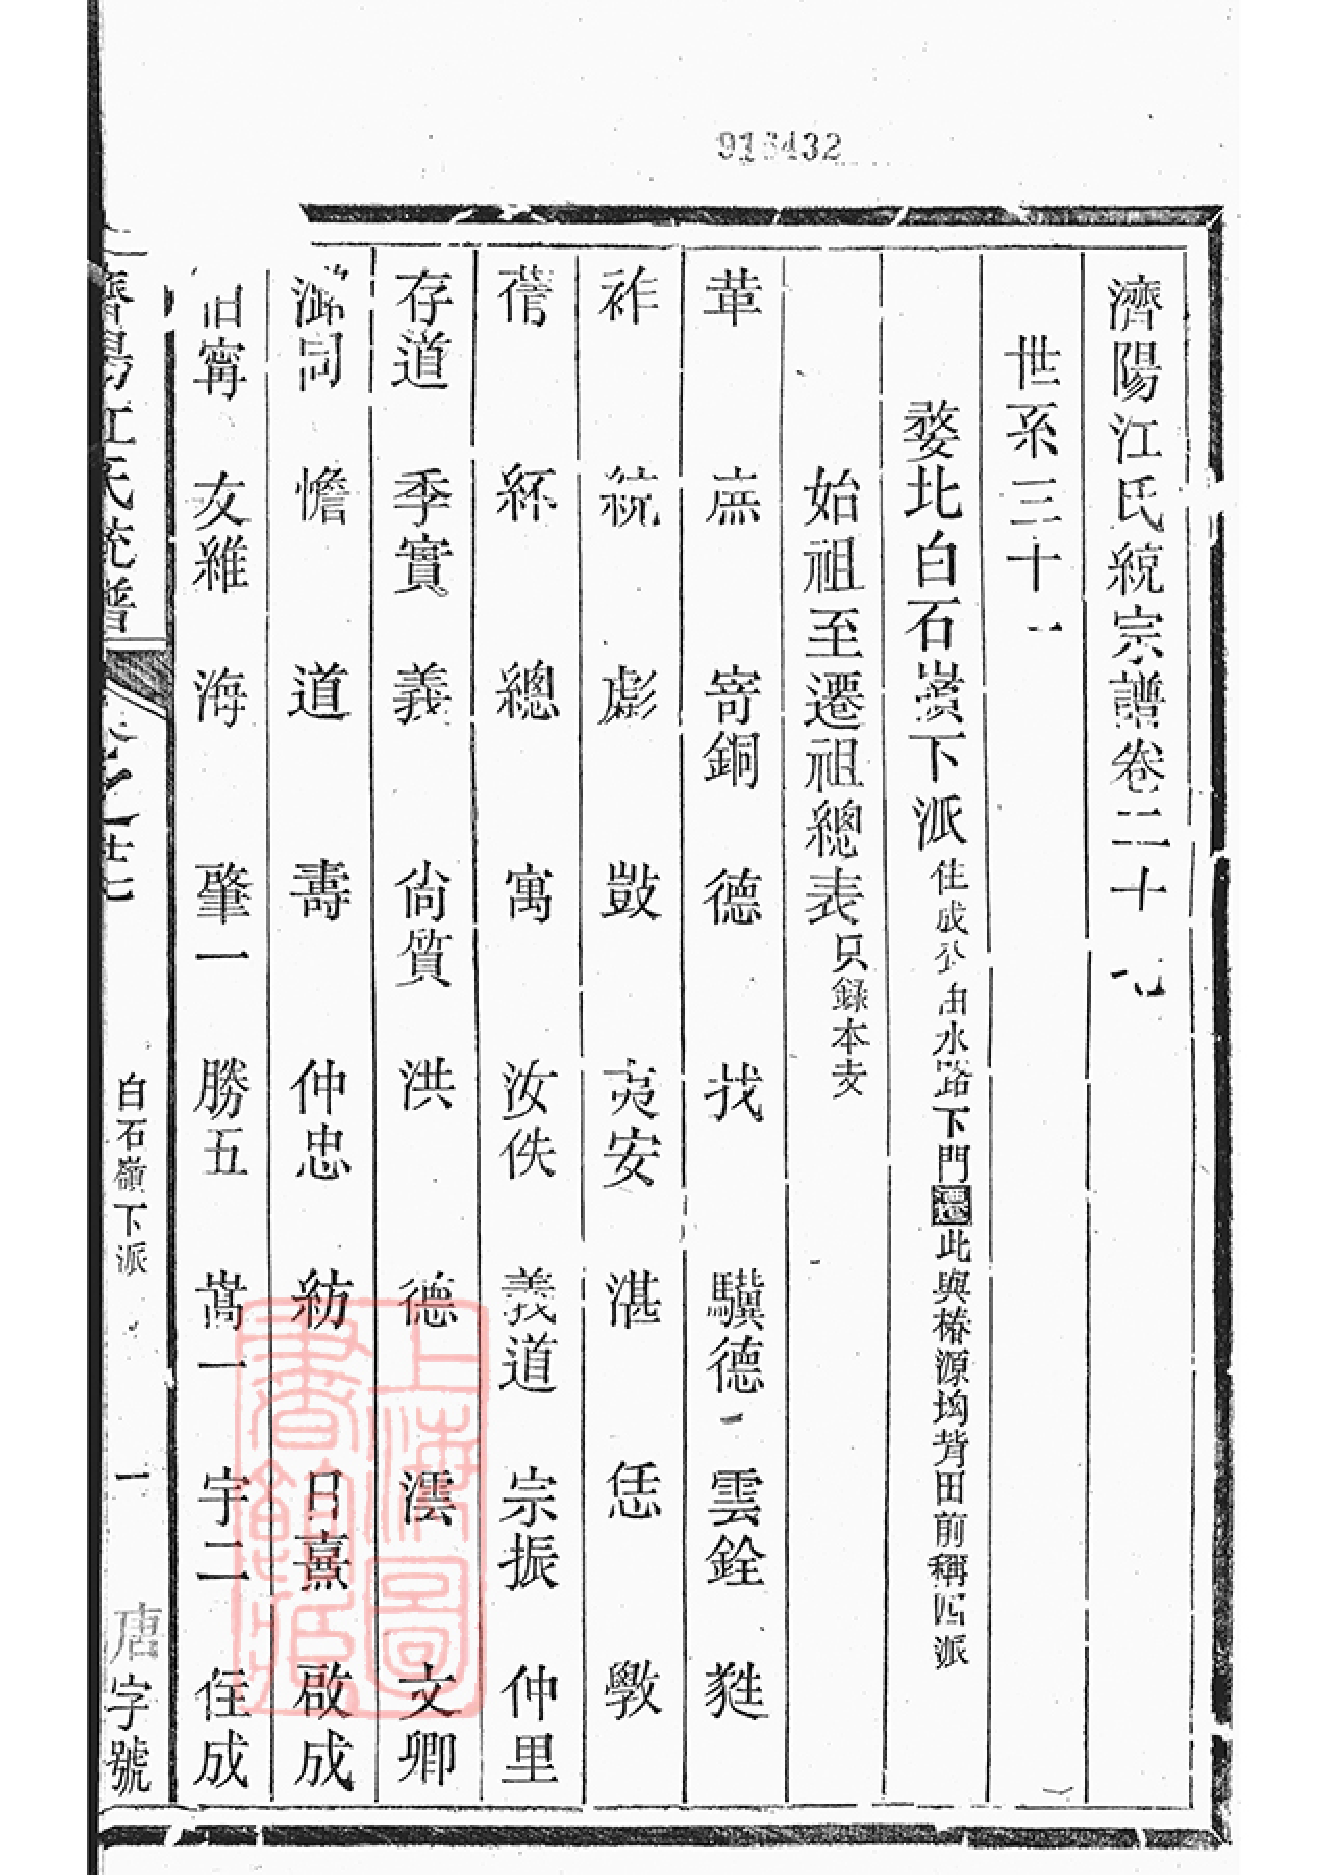 913432
濟陽江氏統宗譜卷二十七
世系三十一
婺北白石嶺下派 住成公由水路下門遷此與椿源坳背田前稱四派
始祖至遷祖總表 只錄本支
革 庶 寄銅 德 找 驥德一 雲銓 甡
祚 統 彪 鼓 夷安 湛 恁 斆
蒨 紑 總 寓 汝佚 義道 宗振 仲里
存道 季實 義 尙質 洪 德 澐 文卿
同 憺 道 壽 仲忠 紡 日熹 啟成
甯 友維 海 肇一 勝五 嵩一 宇二 住成
濟陽江氏統譜 卷之廿七 白石嶺下派 一 唐字號
上海圖書館藏